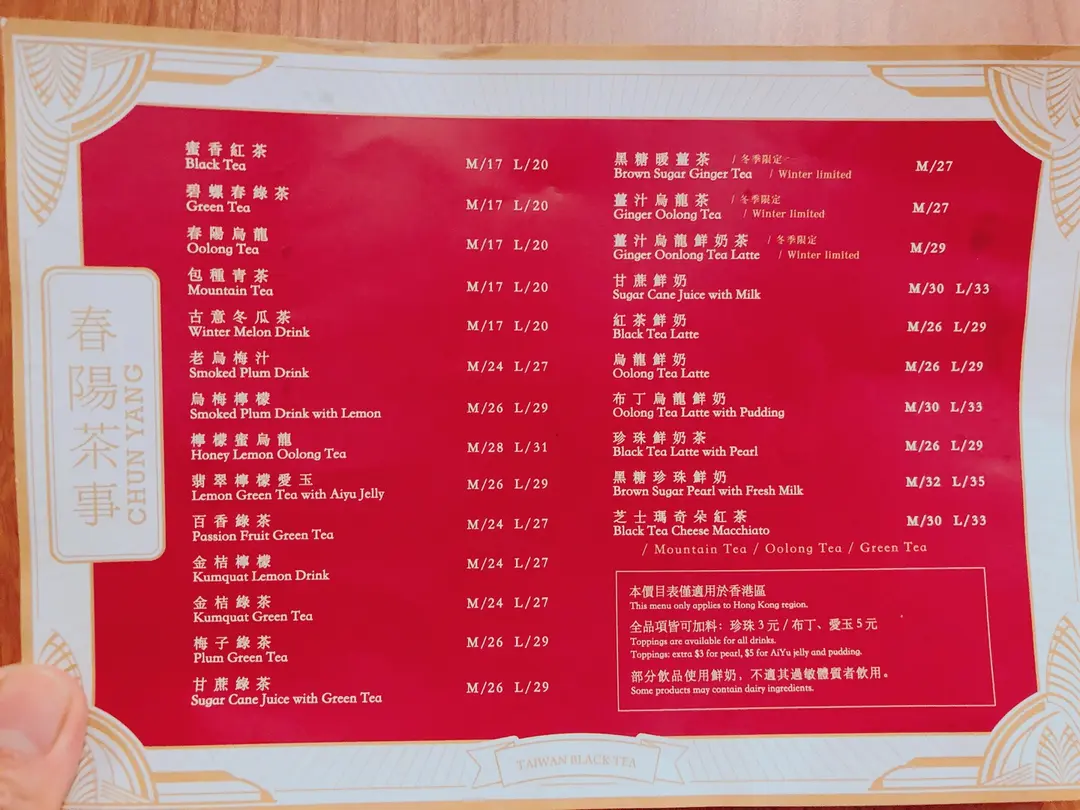 春陽茶事
CHUN YANG
蜜香紅茶
Black Tea M/17 L/20
碧螺春綠茶
Green Tea M/17 L/20
春陽烏龍
Oolong Tea M/17 L/20
包種青茶
Mountain Tea M/17 L/20
古意冬瓜茶
Winter Melon Drink M/17 L/20
老烏梅汁
Smoked Plum Drink M/24 L/27
烏梅檸檬
Smoked Plum Drink with Lemon M/26 L/29
檸檬蜜烏龍
Honey Lemon Oolong Tea M/28 L/31
翡翠檸檬愛玉
Lemon Green Tea with Aiyu Jelly M/26 L/29
百香綠茶
Passion Fruit Green Tea M/24 L/27
金桔檸檬
Kumquat Lemon Drink M/24 L/27
金桔綠茶
Kumquat Green Tea M/24 L/27
梅子綠茶
Plum Green Tea M/26 L/29
甘蔗綠茶
Sugar Cane Juice with Green Tea M/26 L/29
黑糖暖薑茶 / 冬季限定
Brown Sugar Ginger Tea / Winter limited M/27
薑汁烏龍茶 / 冬季限定
Ginger Oolong Tea / Winter limited M/27
薑汁烏龍鮮奶茶 / 冬季限定
Ginger Oonlong Tea Latte / Winter limited M/29
甘蔗鮮奶
Sugar Cane Juice with Milk M/30 L/33
紅茶鮮奶
Black Tea Latte M/26 L/29
烏龍鮮奶
Oolong Tea Latte M/26 L/29
布丁烏龍鮮奶
Oolong Tea Latte with Pudding M/30 L/33
珍珠鮮奶茶
Black Tea Latte with Pearl M/26 L/29
黑糖珍珠鮮奶
Brown Sugar Pearl with Fresh Milk M/32 L/35
芝士瑪奇朵紅茶
Black Tea Cheese Macchiato M/30 L/33
/ Mountain Tea / Oolong Tea / Green Tea
本價目表僅適用於香港區
This menu only applies to Hong Kong region.
全品項皆可加料：珍珠3元/布丁、愛玉5元
Toppings are available for all drinks.
Toppings: extra $3 for pearl, $5 for AiYu jelly and pudding.
部分飲品使用鮮奶，不適其過敏體質者飲用。
Some products may contain dairy ingredients.
TAIWAN BLACK TEA